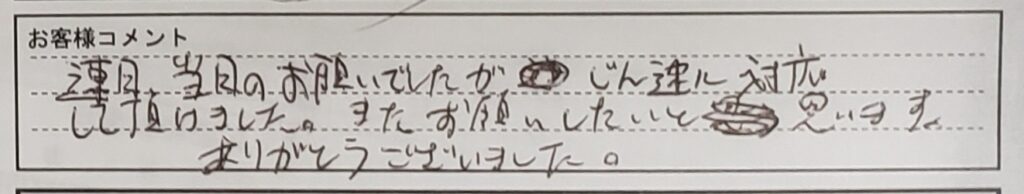 お客様コメント
連日、当日のお願いでしたが じん速に対応
して頂けました。またお願いしたいと 思います。
ありがとうございました。